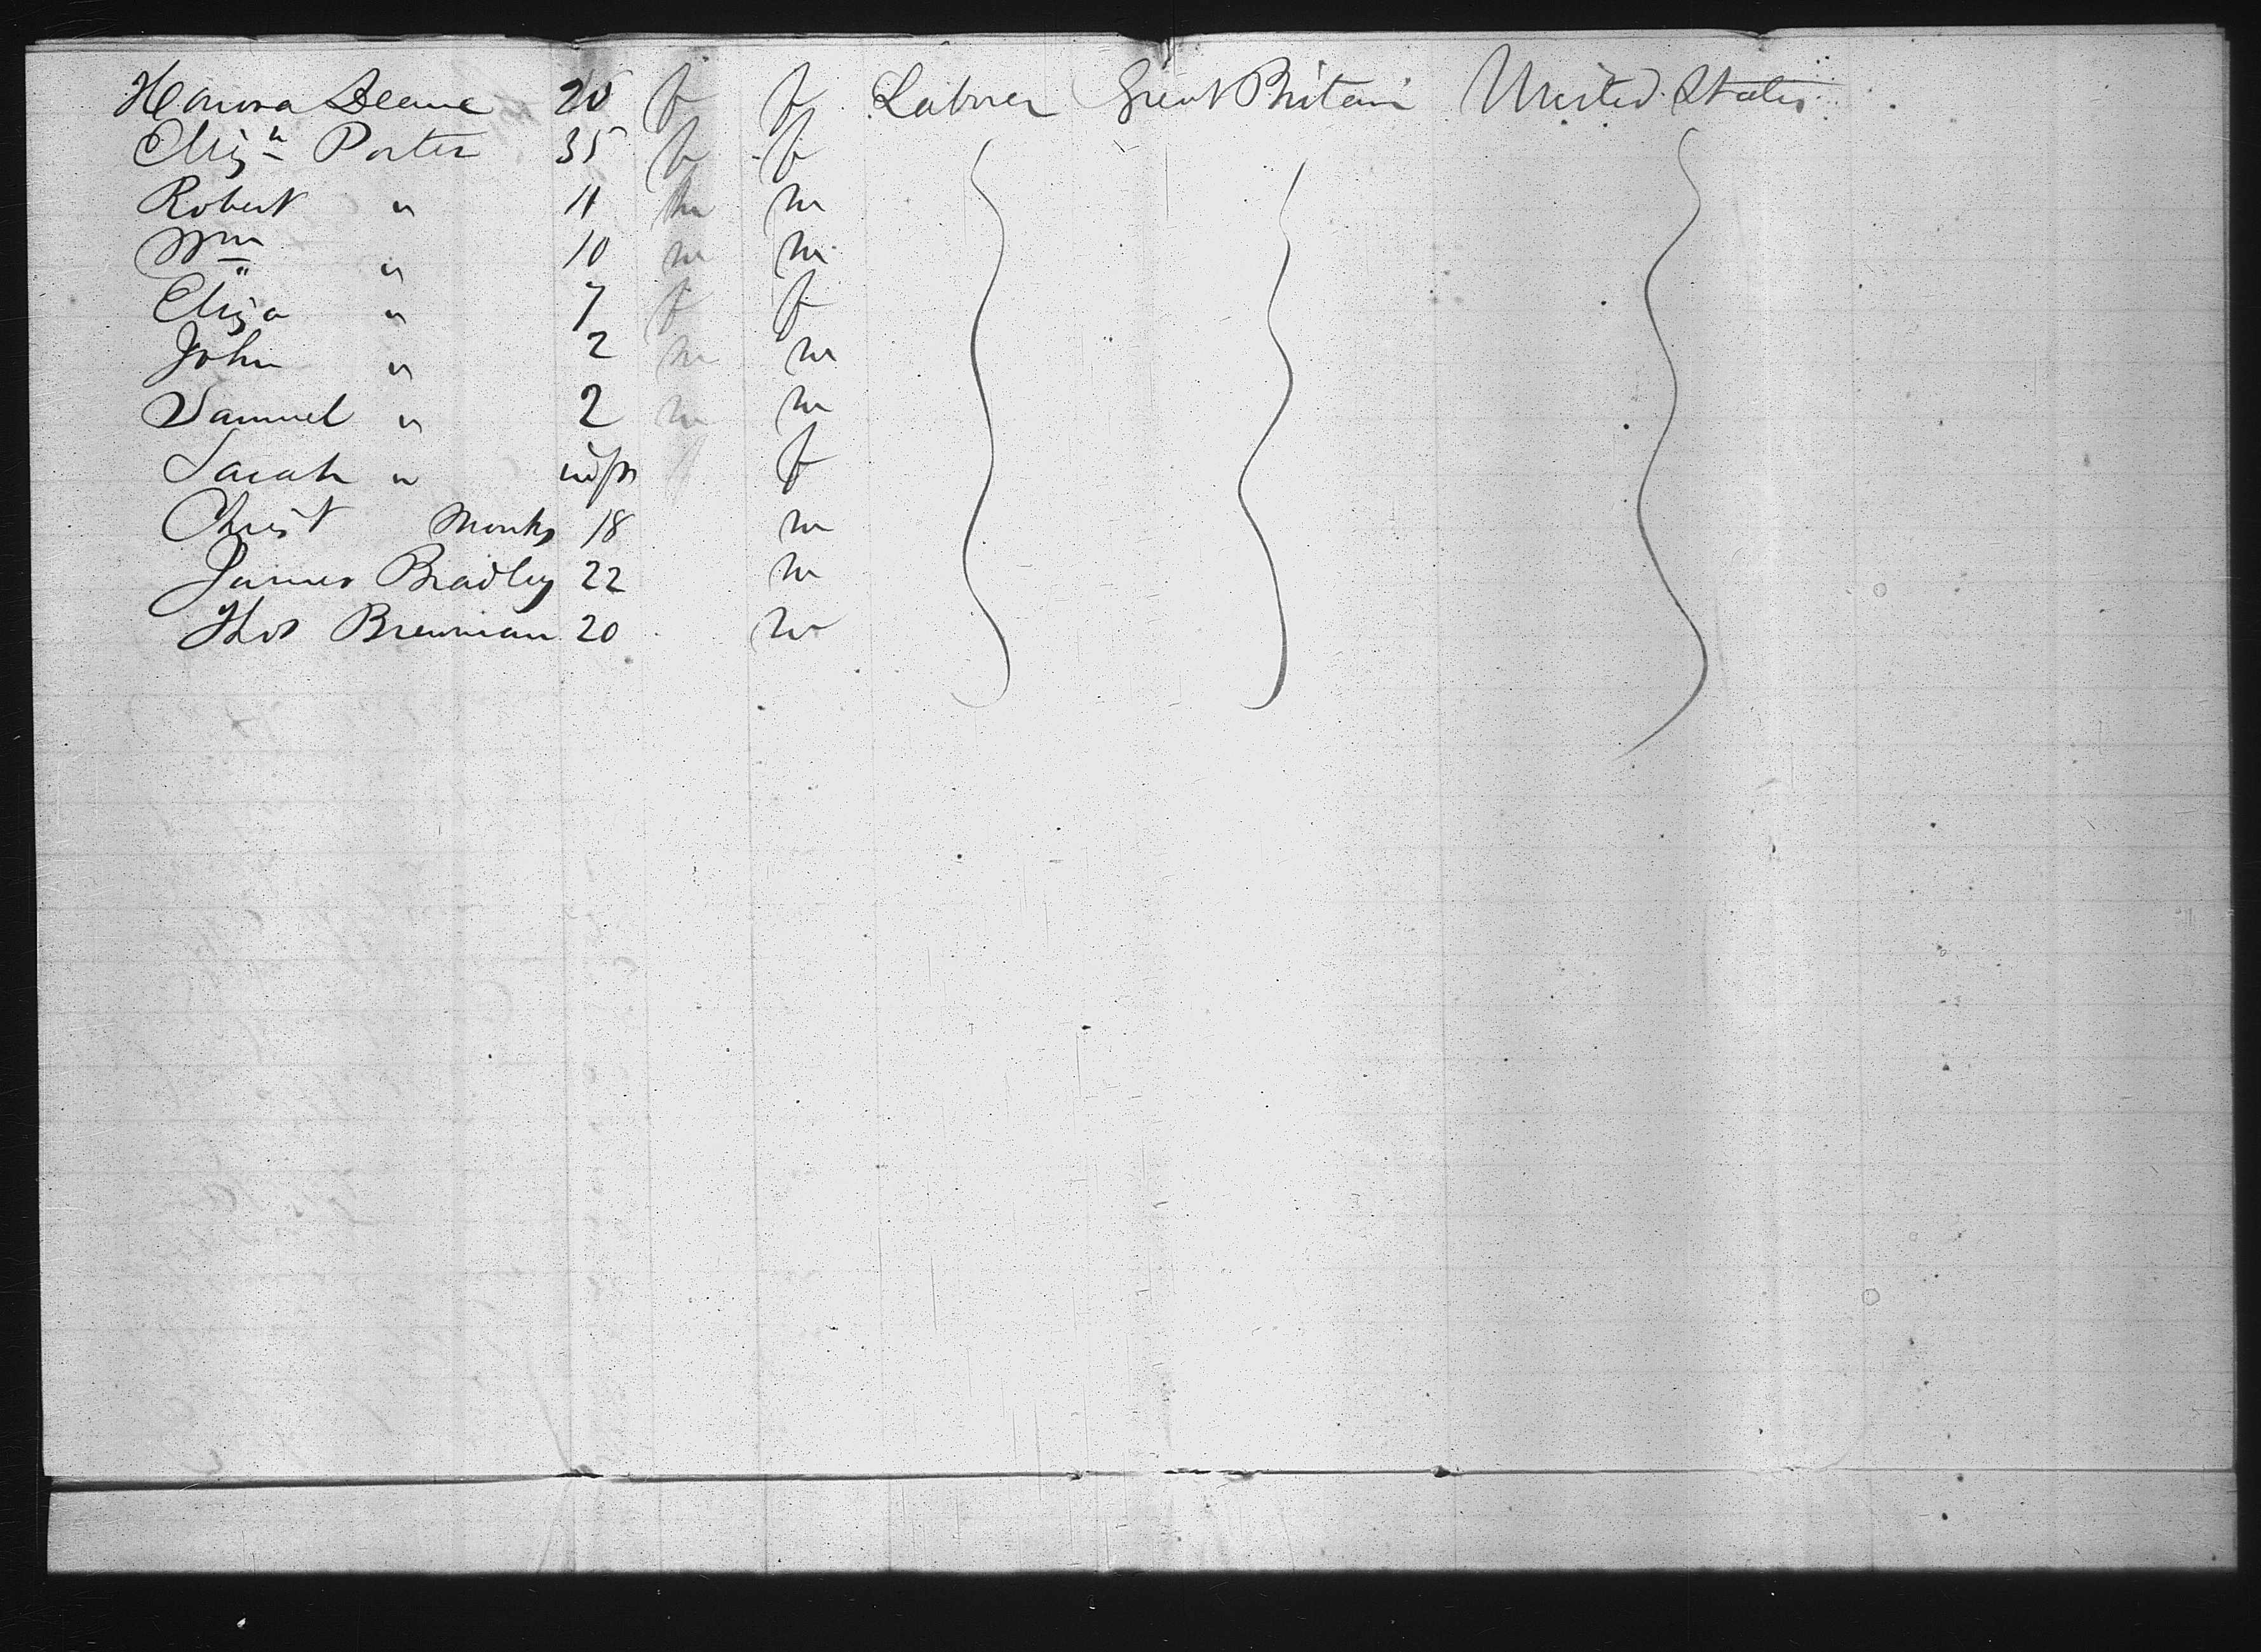 Honora Deane 20 f f Laborer Great Britain United States
Elizh Porter 35 f f
Robert " 11 m m
Wm " 10 m m
Eliza " 7 f f
John " 2 m m
Samuel " 2 m m
Sarah " inft f
Christ Monks 18 m
James Bradley 22 m
Thos Brennan 20 m